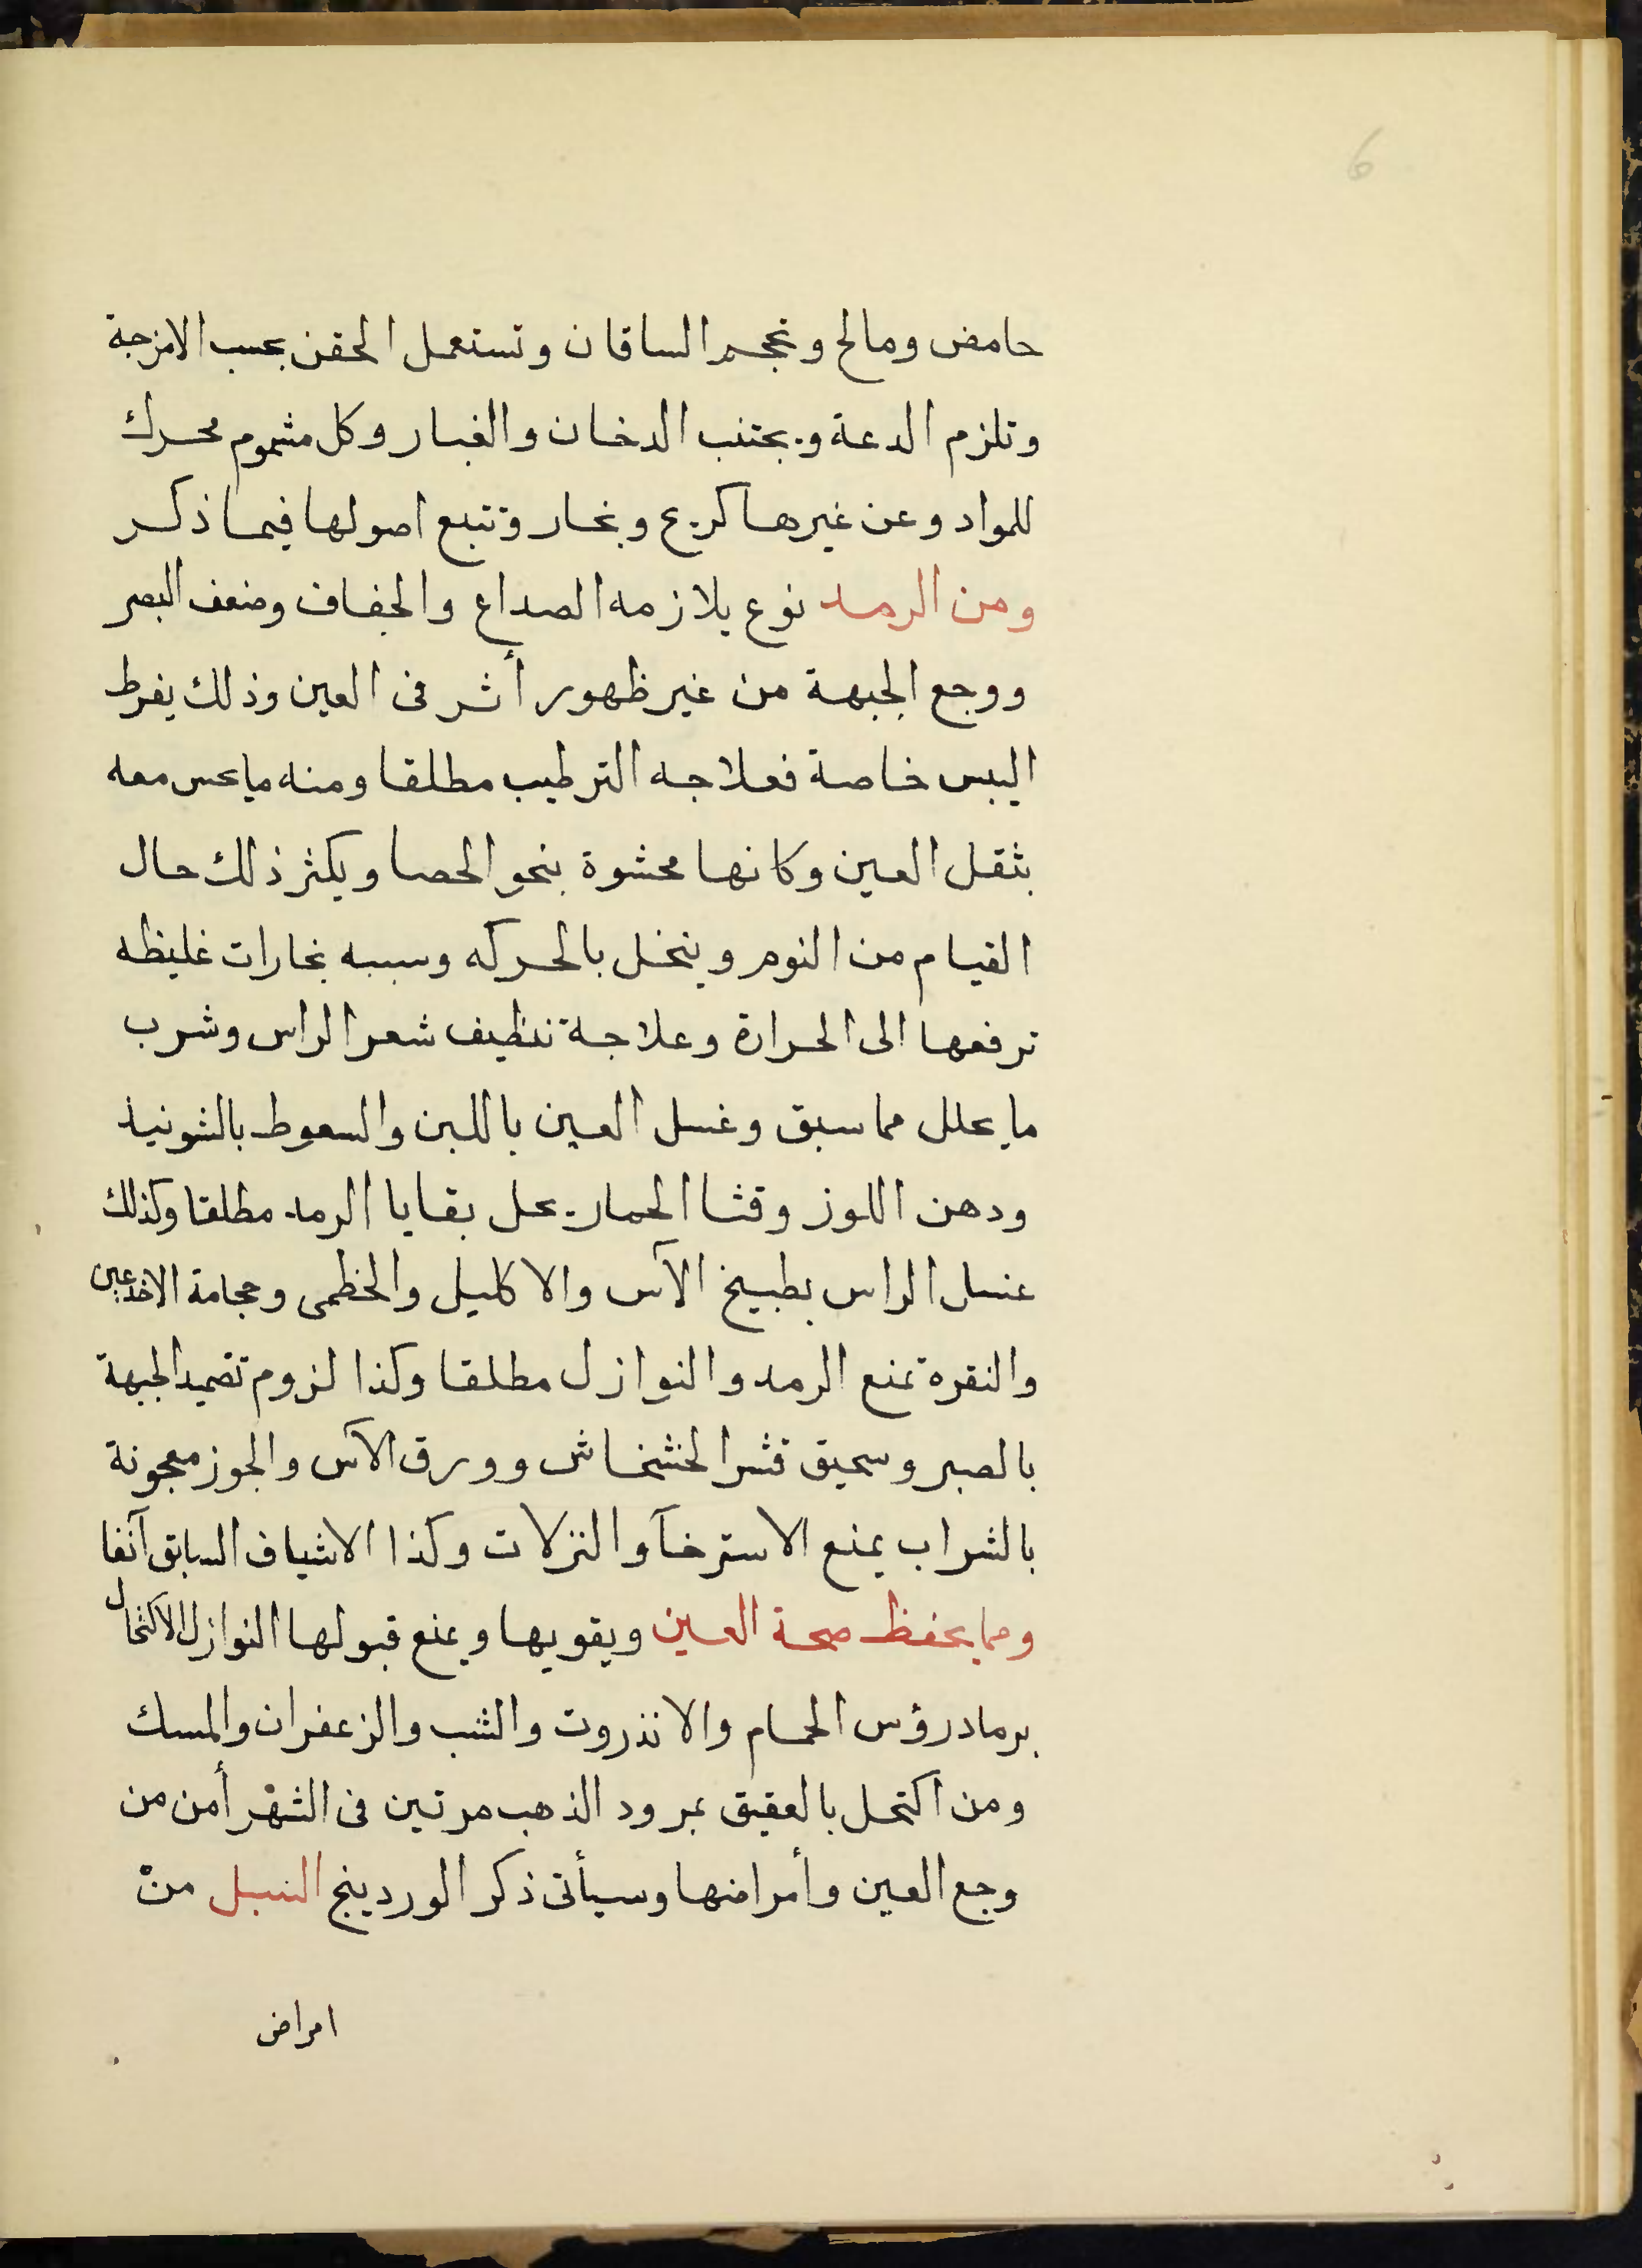 6
حامض ومالح وتحجم الساقان وتستعمل الحقن بحسب الامزجة
وتلزم الدعة ويجتنب الدخان والغبار وكل مشموم محرك
للمواد وعن غيرها كريح وبخار وتتبع اصولها فيما ذكر
ومن الرمد نوع يلازمه الصداع والجفاف وضعف البصر
ووجع الجبهة من غير ظهور أثر فى العين وذلك يفرط
اليبس خاصة فعلاجه الترطيب مطلقا ومنه ما يحس معه
بثقل العين وكانها محشوة بنحو الحصا ويكثر ذلك حال
القيام من النوم وينحل بالحركه وسببه بخارات غليظه
ترفعها الى الحرارة وعلاجة تنظيف شعر الراس وشرب
ما يحلل مما سبق وغسل العين باللبن والسعوط بالشونيذ
ودهن اللوز وقثا الحمار يحل بقايا الرمد مطلقا وكذلك
غسل الراس بطبيخ الآس والاكليل والخطمى وحجامة الاخدعين
والنقرة تمنع الرمد والنوازل مطلقا وكذا لزوم تضميد الجبهة
بالصبر وسحيق قشر الخشخاش وورق الآس والجوز معجونة
بالشراب يمنع الاسترخآ والنزلات وكذا الاشياف السابق آنفا
ومما يحفظ صحة العين ويقويها ويمنع قبولها النوازل الاكتحال
برماد رؤس الحمام والانزروت والشب والزعفران والمسك
ومن اكتحل بالعقيق بمرود الذهب مرتين فى الشهر أمن من
وجع العين وأمراضها وسيأتى ذكر الوردينج السبل من
امراض